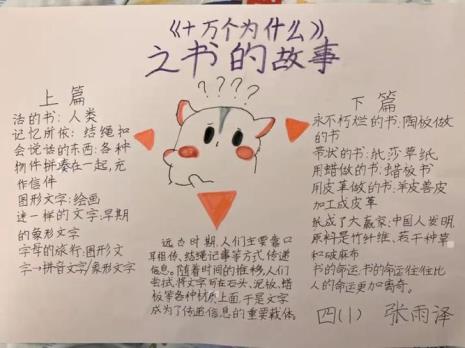 《十万个为什么》
之书的故事
上篇
活的书：人类
记忆所依：结绳和
会说话的东西：各种
物件拼凑在一起，充
作信件
图形文字：绘画
谜一样的文字：早期
的象形文字
字母的旅行：图形文
字→拼音文字/象形文字
????
远古时期，人们主要靠口
耳相传、结绳记事等方式，传递
信息。随着时间的推移，人们
尝试将文字写在石头、泥板、蜡
板等各种材质上面，于是文字
成为了传递信息的重要载体。
下篇
永不朽烂的书：陶板做
的书
带状的书：纸莎草纸
用蜡做的书：蜡板书
用皮革做的书：羊皮兽皮
加工成皮革
纸成了大赢家：中国人发明，
原料是竹纤维、若干种草
和破麻布
书的命运：书的命运往往比
人的命运更加离奇。
四(1) 张雨泽